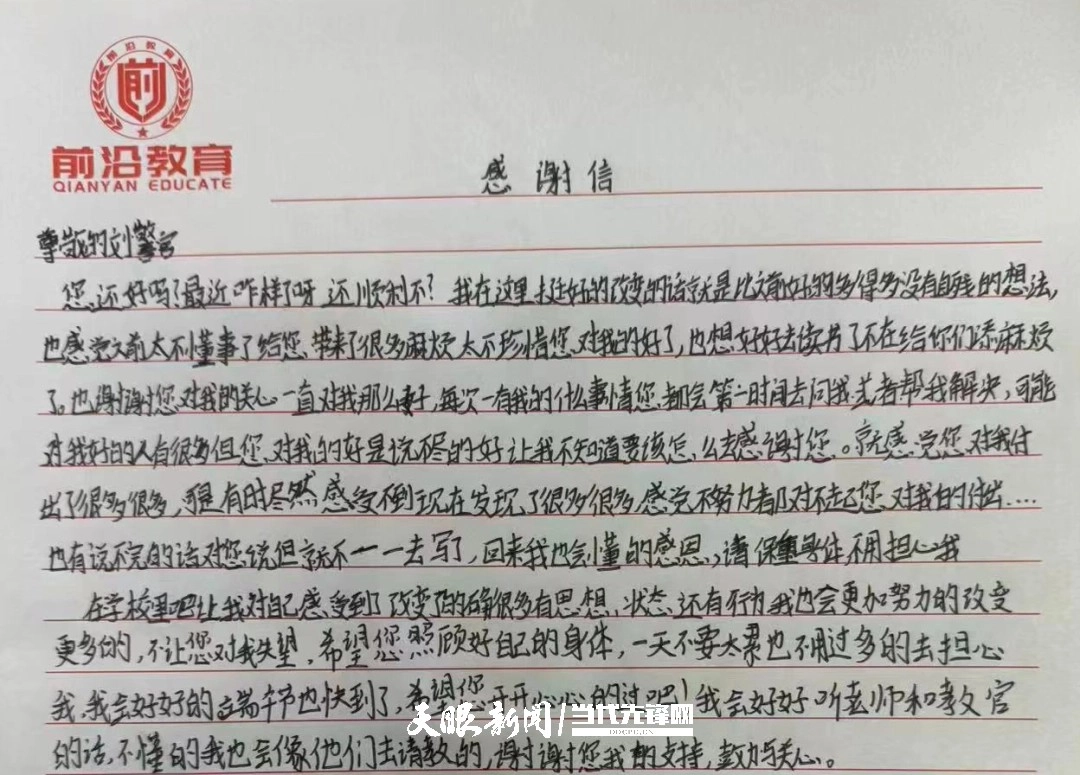 前沿教育
前
前沿教育
QIANYAN EDUCATE
感谢信
尊敬的刘警官
您还好吗?最近咋样了呀 还顺利不?我在这里挺好的改变的话就是比之前好的多得多没有自残的想法,
也感觉之前太不懂事了给您带来了很多麻烦太不珍惜您对我的好了,也想好好去读书了不在给你们添麻烦
了。也谢谢您对我的关心一直对我那么好,每次一有我的什么事情您都会第一时间去问我或者帮我解决,可能
对我好的人有很多但您对我的好是说不尽的好让我不知道要该怎么去感谢您。就感觉您对我付
出了很多很多,可是有时尽然感受不到现在发现了很多很多,感觉不努力都对不起您对我的付出....
也有说不完的话对您说但就不一一去写了,回来我也会懂的感恩,请保重身体不用担心我
在学校里吧让我对自己感受到了改变了的确很多有思想、状态、还有行为我也会更加努力的改变
更多的,不让您对我失望,希望您照顾好自己的身体,一天不要太累也不用过多的去担心
我,我会好好的端午节也快到了,希望您开开心心的过吧!我会好好听老师和教官
的话,不懂的我也会像他们去请教的,谢谢您我的支持,鼓力与关心。
天眼新闻/当代先锋网
DDCPC.CN